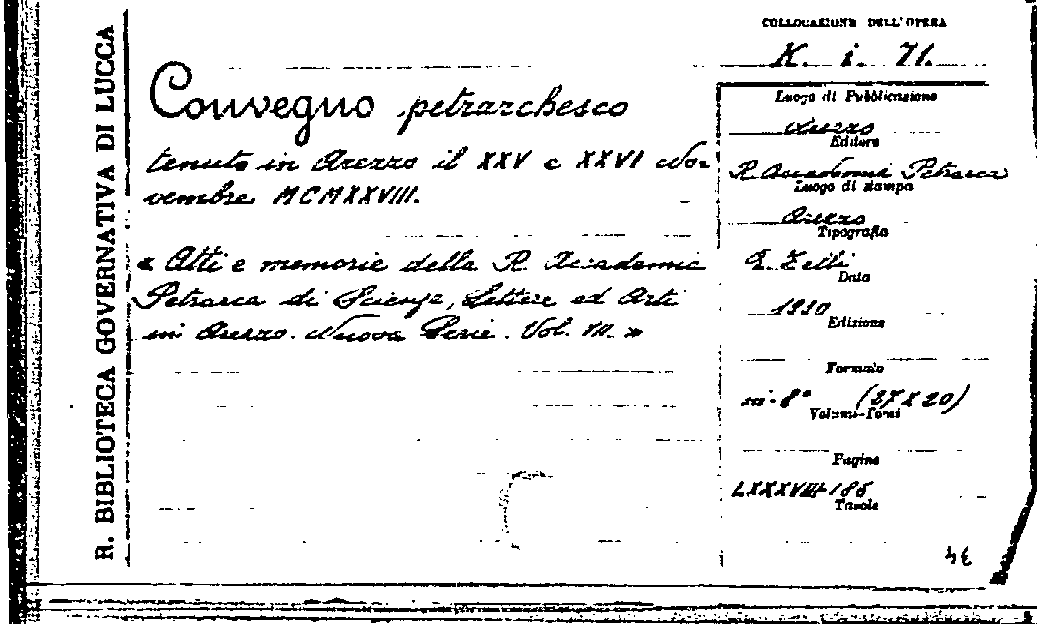 R. BIBLIOTECA GOVERNATIVA DI LUCCA
COLLOCAZIONE DELL'OPERA
K. i. 71.
Convegno petrarchesco
tenuto in Arezzo il XXV e XXVI No-
vembre MCMXXVIII.
« Atti e memorie della R. Accademia
Petrarca di Scienze, Lettere ed Arti
in Arezzo. Nuova Serie. Vol. VII. »
Luogo di Pubblicazione
Arezzo
Editore
R. Accademia Petrarca
Luogo di stampa
Arezzo
Tipografia
Zelli
Data
1930
Edizione
Formato
in-8° (27 X 20)
Volumi-Tomi
Pagine
LXXXVIII-186
Tavole